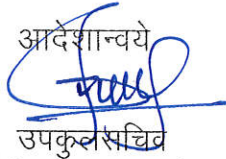 आदेशान्वये
उपकुलसचिव